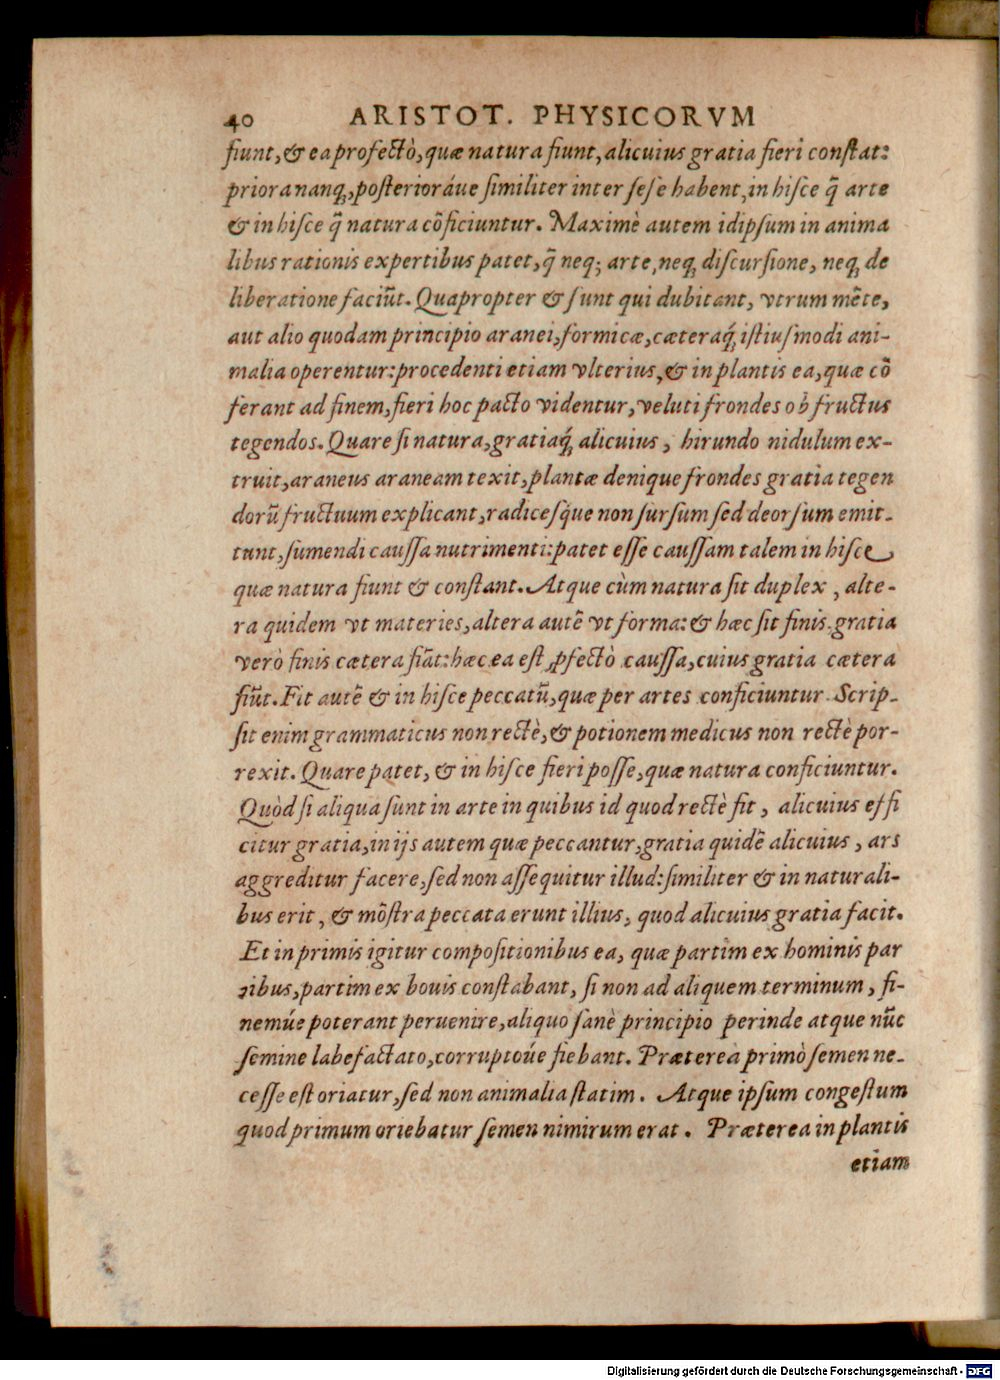 40 ARISTOT. PHYSICORVM
fiunt, & ea profectò, quæ natura fiunt, alicuius gratia fieri constat:
priora nanq;, posterioráue similiter inter sese habent, in hisce q̃ arte
& in hisce q̃ natura cõficiuntur. Maximè autem idipsum in anima
libus rationis expertibus patet, q̃ neq; arte, neq; discursione, neq; de
liberatione faciũt. Quapropter & sunt qui dubitant, vtrum mẽte,
aut alio quodam principio aranei, formicæ, cæteraq́; istiusmodi ani-
malia operentur: procedenti etiam vlterius, & in plantis ea, quæ cõ
ferant ad finem, fieri hoc pacto videntur, veluti frondes ob fructus
tegendos. Quare si natura, gratiaq́; alicuius, hirundo nidulum ex-
truit, araneus araneam texit, plantæ denique frondes gratia tegen
dorũ fructuum explicant, radicesq́ue non sursum sed deorsum emit-
tunt, sumendi caussa nutrimenti: patet esse caussam talem in hisce
quæ natura fiunt & constant. Atque cùm natura sit duplex, alte-
ra quidem vt materies, altera autẽ vt forma: & hæc sit finis. gratia
verò finis cætera fiãt: hæc ea est ꝓfectò caussa, cuius gratia cætera
fiũt. Fit autẽ & in hisce peccatũ, quæ per artes conficiuntur. Scrip-
sit enim grammaticus non rectè, & potionem medicus non rectè por-
rexit. Quare patet, & in hisce fieri posse, quæ natura conficiuntur.
Quòd si aliqua sunt in arte in quibus id quod rectè fit, alicuius effi
citur gratia, in ijs autem quæ peccantur, gratia quidẽ alicuius, ars
aggreditur facere, sed non assequitur illud: similiter & in naturali-
bus erit, & mõstra peccata erunt illius, quod alicuius gratia facit.
Et in primis igitur compositionibus ea, quæ partim ex hominis par
tibus, partim ex bouis constabant, si non ad aliquem terminum, fi-
nemúe poterant peruenire, aliquo sanè principio perinde atque nũc
semine labefactato, corruptoúe fiebant. Præterea primò semen ne-
cesse est oriatur, sed non animalia statim. Atque ipsum congestum
quod primum oriebatur semen nimirum erat. Præterea in plantis
etiam
Digitalisierung gefördert durch die Deutsche Forschungsgemeinschaft - DFG